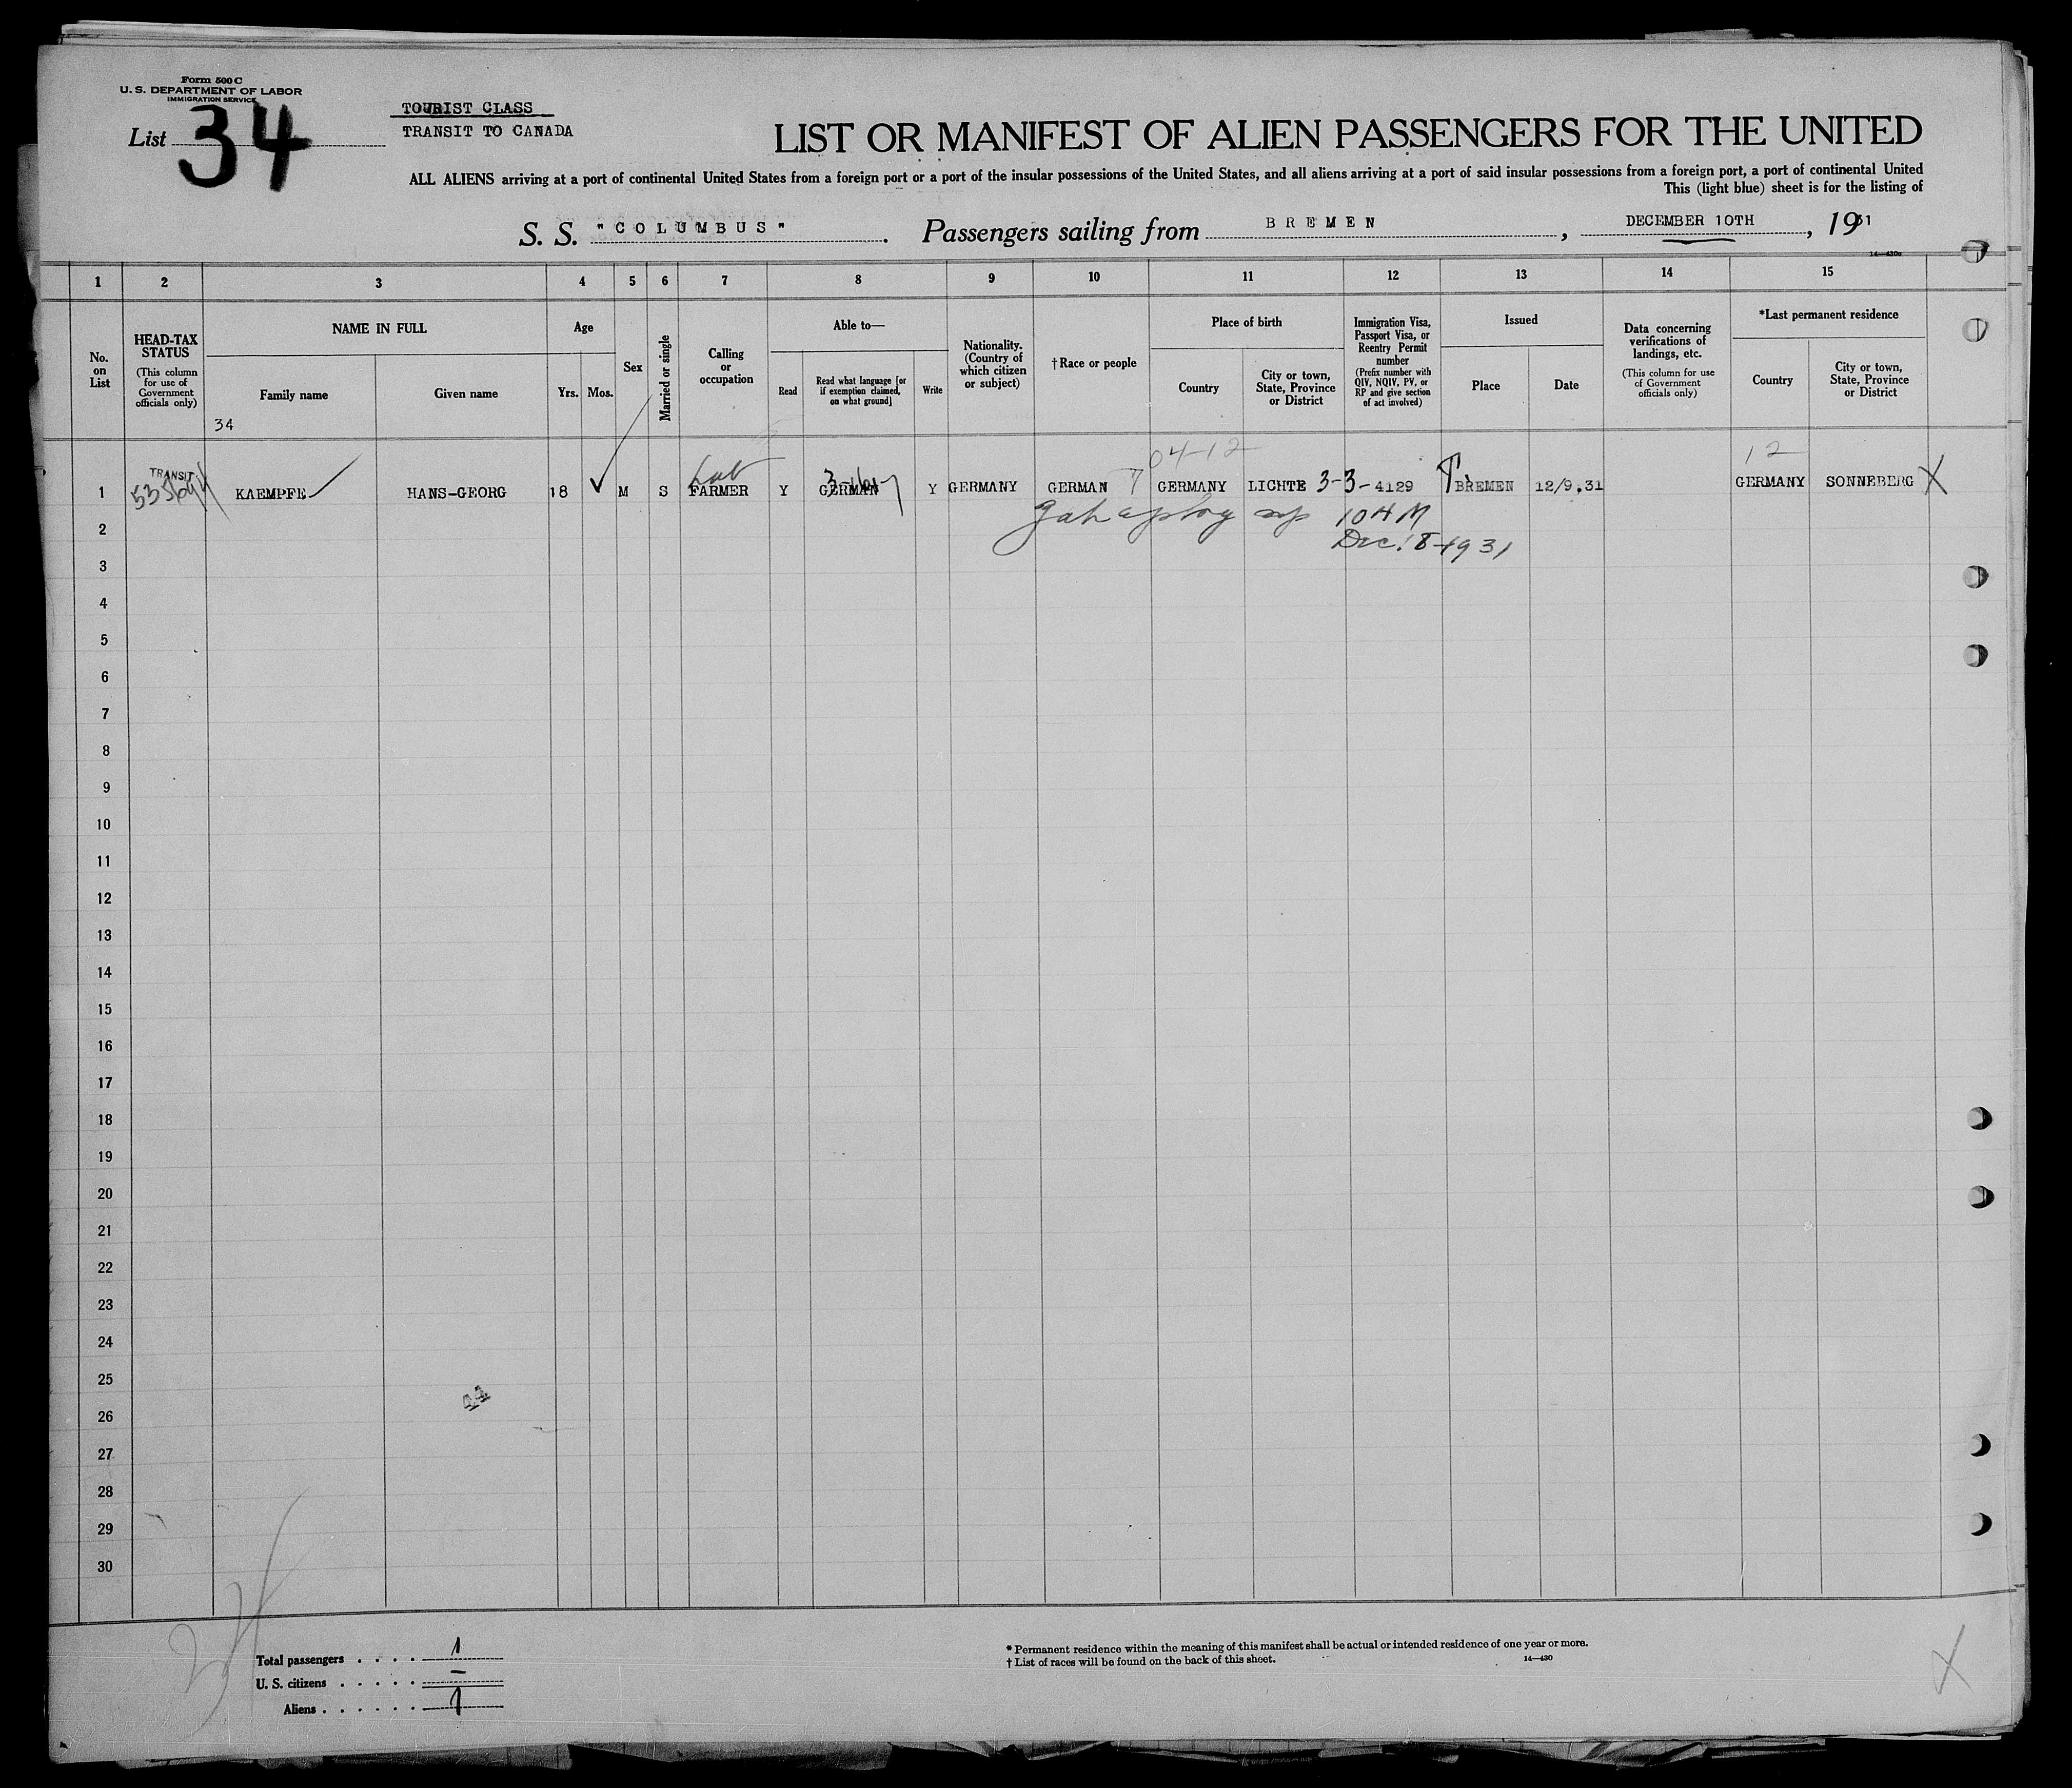 Form 500 C
U. S. DEPARTMENT OF LABOR
IMMIGRATION SERVICE
List 34
TOURIST CLASS
TRANSIT TO CANADA
LIST OR MANIFEST OF ALIEN PASSENGERS FOR THE UNITED
ALL ALIENS arriving at a port of continental United States from a foreign port or a port of the insular possessions of the United States, and all aliens arriving at a port of said insular possessions from a foreign port, a port of continental United
This (light blue) sheet is for the listing of
S. S. "COLUMBUS". Passengers sailing from BREMEN, DECEMBER 10TH, 1931
14—430c
1 2 3 4 5 6 7 8 9 10 11 12 13 14 15
No. on List
HEAD-TAX STATUS
(This column for use of Government officials only)
NAME IN FULL
Family name
Given name
34
Age
Yrs. Mos.
Sex
Married or single
Calling or occupation
Able to—
Read
Read what language [or if exemption claimed, on what ground]
Write
Nationality. (Country of which citizen or subject)
† Race or people
Place of birth
Country
City or town, State, Province or District
Immigration Visa, Passport Visa, or Reentry Permit number
(Prefix number with QIV, NQIV, PV, or RP and give section of act involved)
Issued
Place
Date
Data concerning verifications of landings, etc.
(This column for use of Government officials only)
*Last permanent residence
Country
City or town, State, Province or District
04-12 12
TRANSIT
1 KAEMPFE HANS-GEORG 18 M S FARMER Y GERMAN Y GERMANY GERMAN GERMANY LICHTE 3-3-4129 BREMEN 12/9.31 GERMANY SONNEBERG X
104 M
2
Dec. 18-1931
3
4
5
6
7
8
9
10
11
12
13
14
15
16
17
18
19
20
21
22
23
24
25
44
26
27
28
29
30
Total passengers . . . . 1
U. S. citizens . . . . . –
Aliens . . . . . . 1
* Permanent residence within the meaning of this manifest shall be actual or intended residence of one year or more.
† List of races will be found on the back of this sheet.
14—430
X